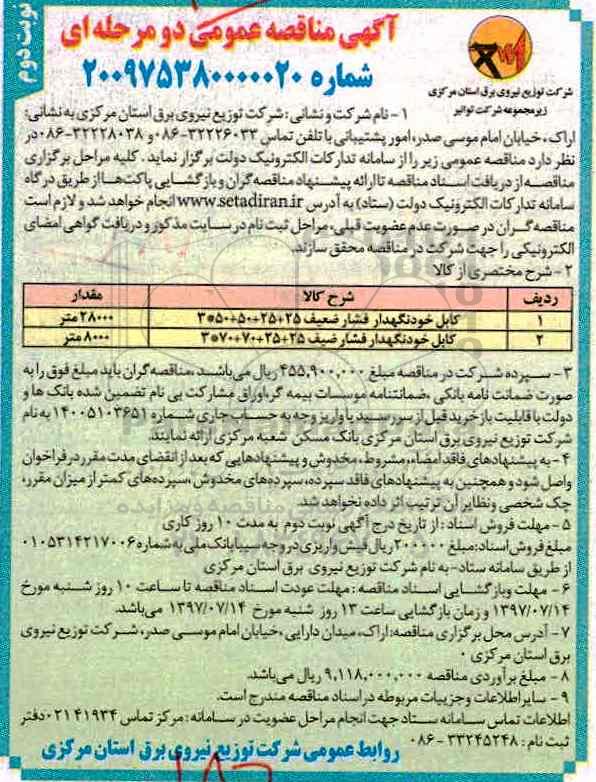 نوبت دوم
آگهی مناقصه عمومی دو مرحله ای
شماره ۲۰۰۹۷۵۳۸۰۰۰۰۰۰۲۰
شرکت توزیع نیروی برق استان مرکزی
زیرمجموعه شرکت توانیر
۱ - نام شرکت و نشانی: شرکت توزیع نیروی برق استان مرکزی به نشانی:
اراک، خیابان امام موسی صدر، امور پشتیبانی با تلفن تماس ۳۲۲۲۶۰۳۳-۰۸۶ و ۳۲۲۲۸۰۳۸-۰۸۶ در
نظر دارد مناقصه عمومی زیر را از سامانه تدارکات الکترونیک دولت برگزار نماید. کلیه مراحل برگزاری
مناقصه از دریافت اسناد مناقصه تا ارائه پیشنهاد مناقصه گران و بازگشایی پاکت ها از طریق درگاه
سامانه تدارکات الکترونیک دولت (ستاد) به آدرس www.setadiran.ir انجام خواهد شد و لازم است
مناقصه گران در صورت عدم عضویت قبلی، مراحل ثبت نام در سایت مذکور و دریافت گواهی امضای
الکترونیکی را جهت شرکت در مناقصه محقق سازند.
۲ - شرح مختصری از کالا
ردیف شرح کالا مقدار
۱ کابل خودنگهدار فشار ضعیف ۲۵+۲۵+۵۰+۵۰*۳ ۲۸۰۰۰ متر
۲ کابل خودنگهدار فشار ضیف ۲۵+۲۵+۷۰+۷۰*۳ ۸۰۰۰ متر
۳ - سپرده شرکت در مناقصه مبلغ ۴۵۵,۹۰۰,۰۰۰ ریال می باشند، مناقصه گران باید مبلغ فوق را به
صورت ضمانت نامه بانکی، ضمانتنامه موسسات بیمه گر، اوراق مشارکت بی نام تضمین شده بانک ها و
دولت با قابلیت باز خرید قبل از سررسید یا واریز وجه به حساب جاری شماره ۱۴۰۰۵۱۰۳۶۵۱ به نام
شرکت توزیع نیروی برق استان مرکزی بانک مسکن شعبه مرکزی ارائه نمایند.
۴ - به پیشنهادهای فاقد امضاء، مشروط، مخدوش و پیشنهادهایی که بعد از انقضای مدت مقرر در فراخوان
واصل شود و همچنین به پیشنهادهای فاقد سپرده، سپرده های مخدوش، سپرده های کمتر از میزان مقرر،
چک شخصی و نظایر آن ترتیب اثر داده نخواهد شد.
۵ - مهلت فروش اسناد: از تاریخ درج آگهی نوبت دوم به مدت ۱۰ روز کاری
مبلغ فروش اسناد: مبلغ ۲۰۰۰۰۰ ریال فیش واریزی در وجه سیبا بانک ملی به شماره ۰۱۰۵۳۱۴۲۱۷۰۰۶
از طریق سامانه ستاد- به نام شرکت توزیع نیروی برق استان مرکزی
۶ - مهلت و بازگشایی اسناد مناقصه: مهلت عودت اسناد مناقصه تا ساعت ۱۰ روز شنبه مورخ
۱۳۹۷/۰۷/۱۴ و زمان بازگشایی ساعت ۱۳ روز شنبه مورخ ۱۳۹۷/۰۷/۱۴ می باشد.
۷ - آدرس محل برگزاری مناقصه: اراک، میدان دارایی، خیابان امام موسی صدر، شرکت توزیع نیروی
برق استان مرکزی ۰
۸ - مبلغ برآوردی مناقصه ۹,۱۱۸,۰۰۰,۰۰۰ ریال می باشد.
۹ - سایر اطلاعات و جزییات مربوطه در اسناد مناقصه مندرج است.
اطلاعات تماس سامانه ستاد جهت انجام مراحل عضویت در سامانه: مرکز تماس ۴۱۹۳۴-۰۲۱ دفتر
ثبت نام: ۳۳۲۴۵۲۴۸-۰۸۶
روابط عمومی شرکت توزیع نیروی برق استان مرکزی